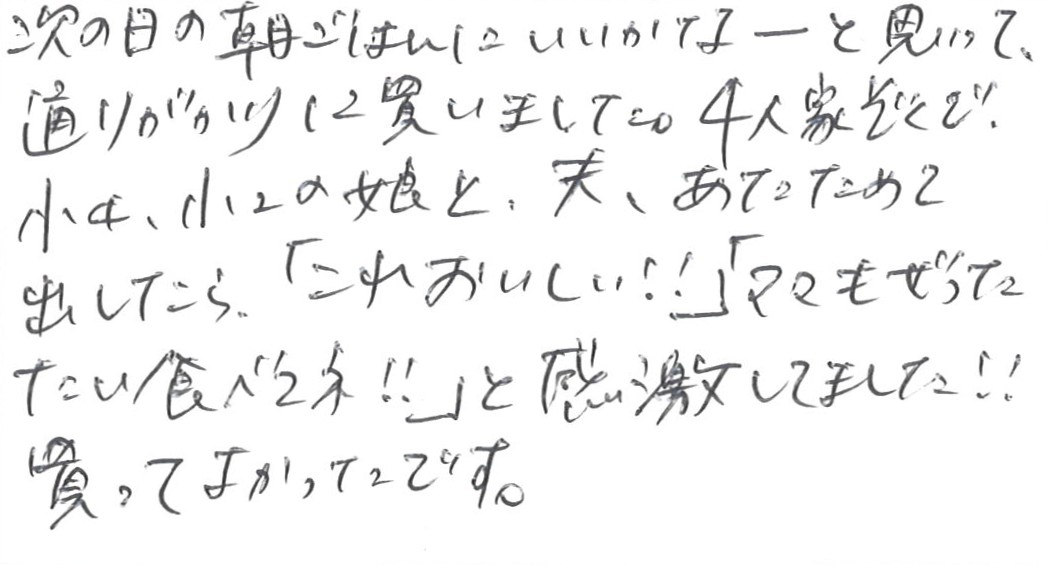 次の日の朝ごはんにいいかなーと思って、
通りがかりに買いました。4人家ぞくで、
小4、小2の娘と、夫、あたためて
出したら、「これおいしい!!」「ママもぜった
たい食べてネ!!」と感激してました!!
買ってよかったです。